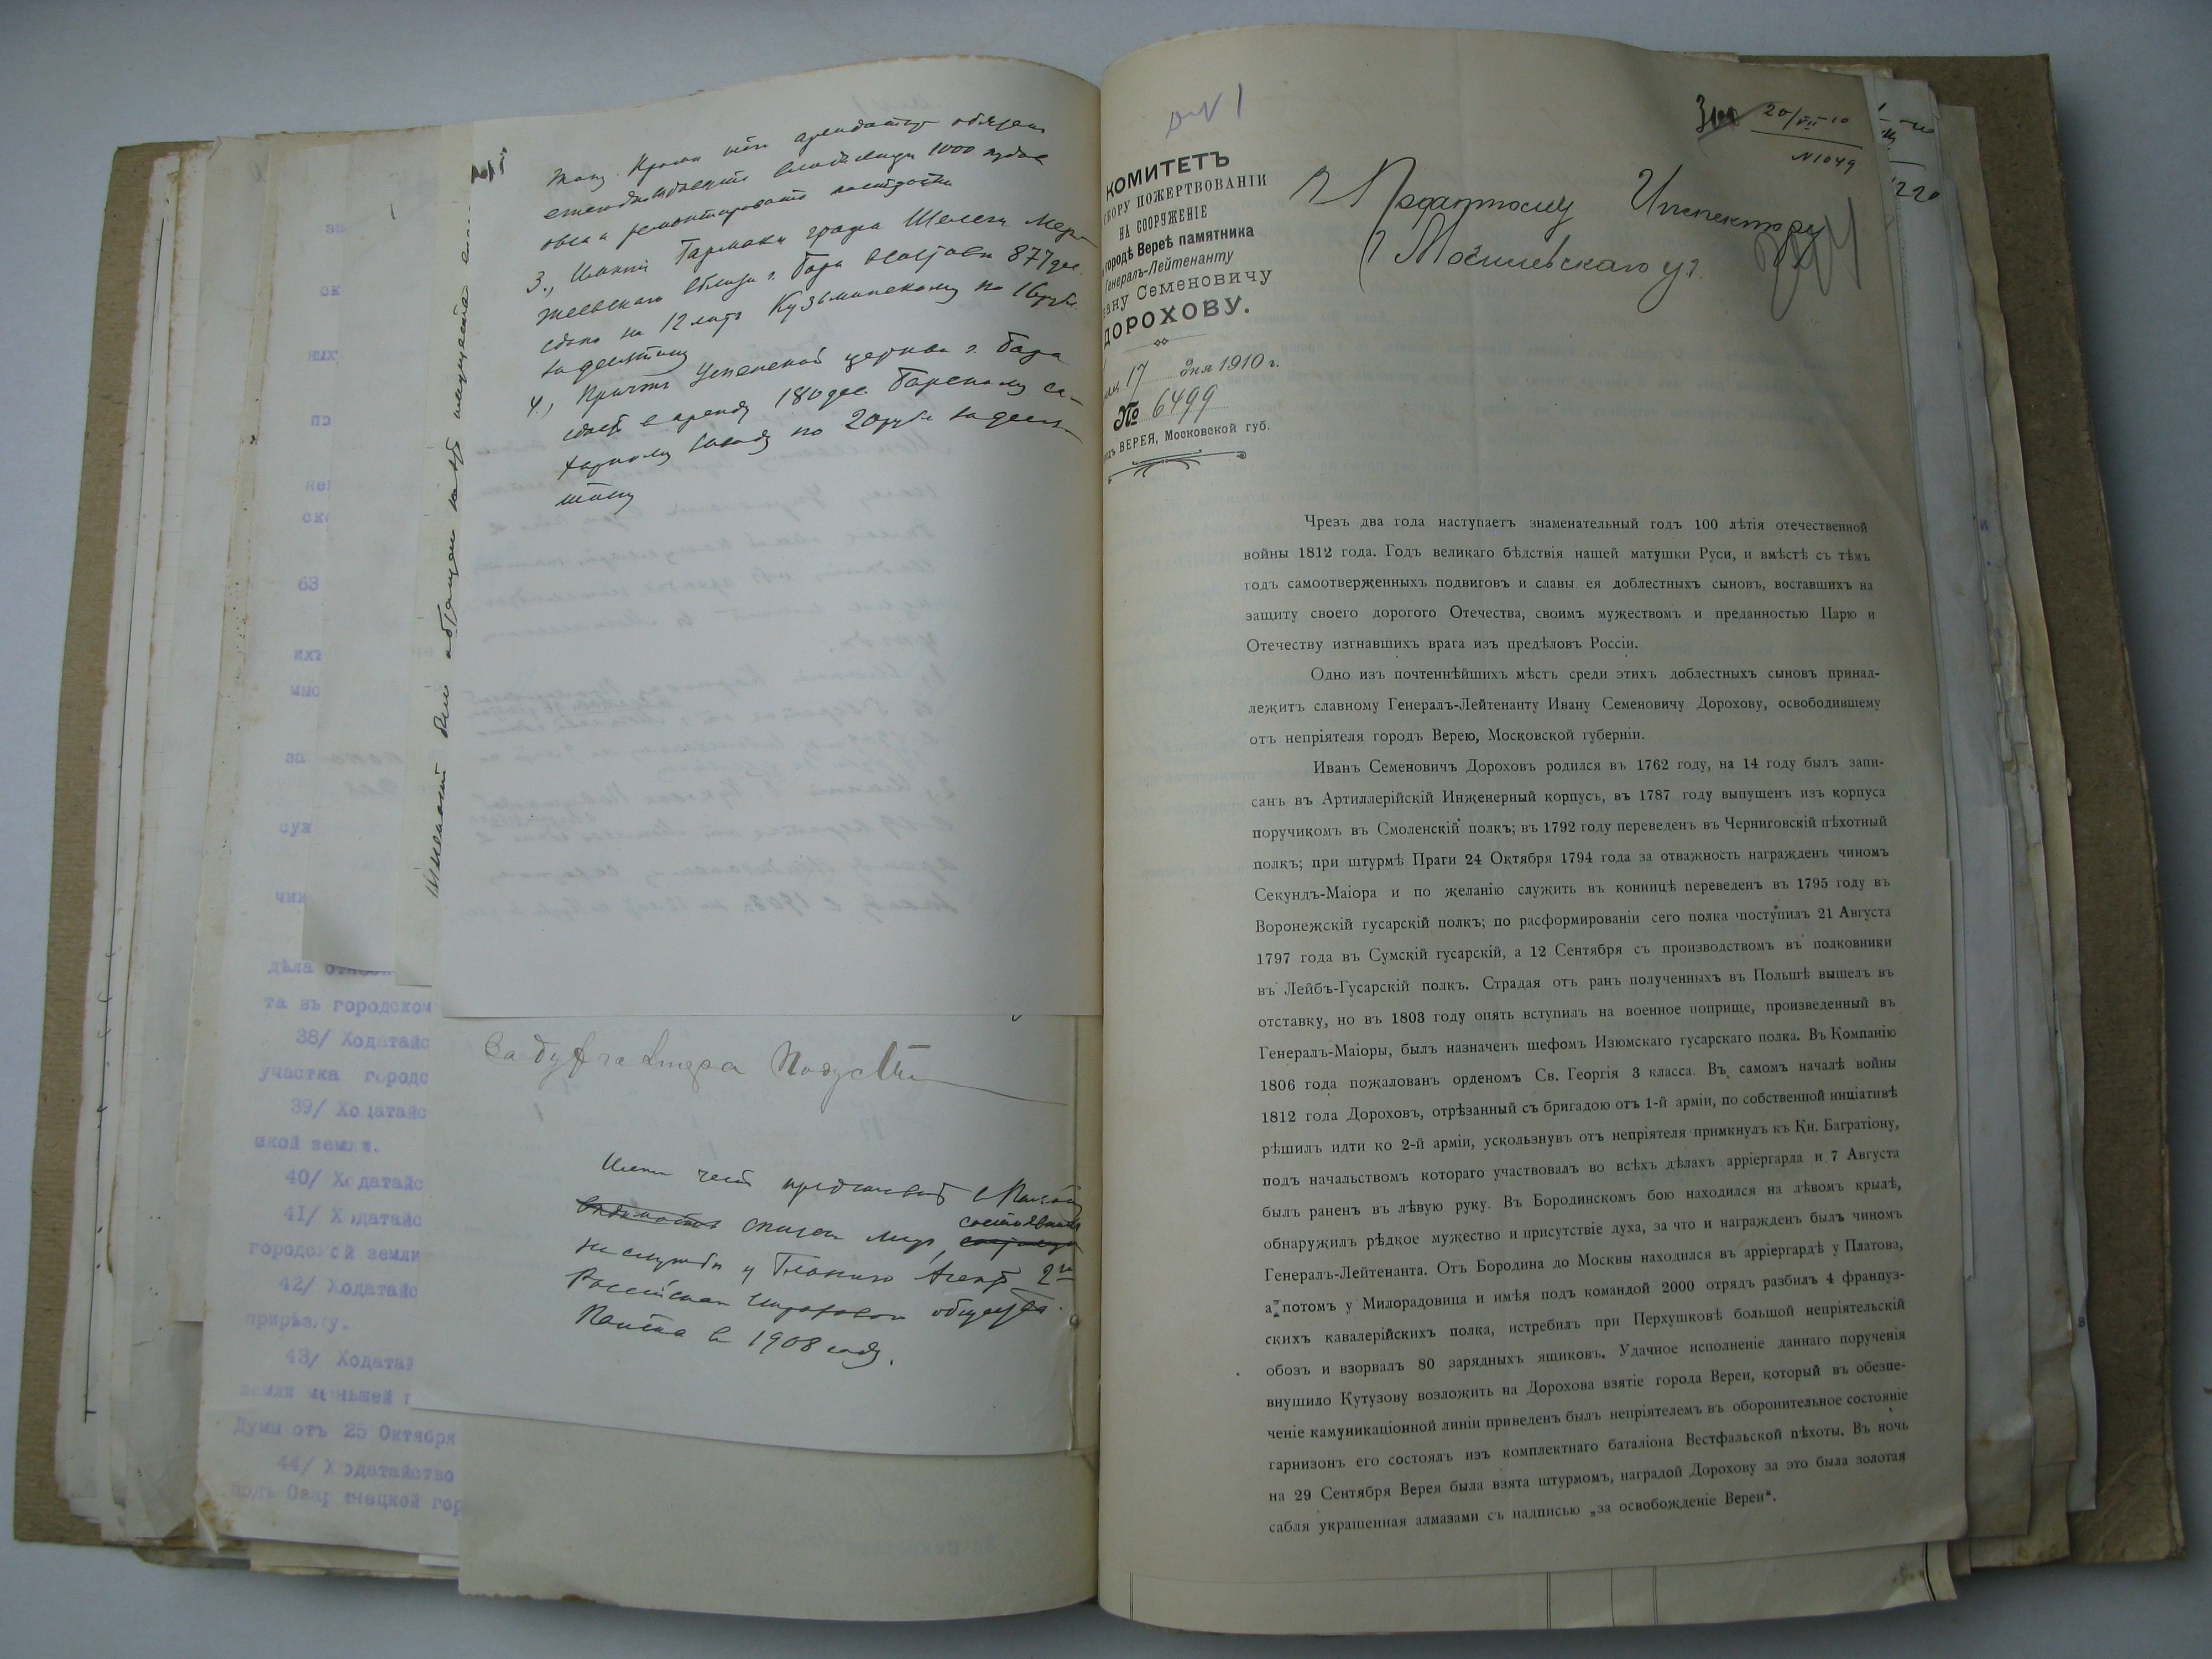 тану. Кроме того арендаторъ обязанъ
1000 пудовъ
овса и ремонтировать постройки
3., Имѣніе Гармаки графа
г. Бара 877 дес.
сдано на 12 лѣтъ Кузьминскому по 16 руб.
за десятину
4., Причтъ Успенской церкви г. Бара
сдаетъ въ аренду 180 дес. Барскому са-
харному заводу по 20 руб. за деся-
тину
за
ск
ных
по
не
ск
63
ихъ
мыс
за
суж
чин
дѣла
та въ городском
38/ Ходатайс
участка городс
39/ Ходатайс
ской земли.
40/ Ходатайс
41/ Ходатайс
городской земли
42/ Ходатайс
прирѣзку.
43/ Ходатай
земли меньшей п
Думы отъ 25 Октября
44/ Ходатайство
Имѣю честь представить
списокъ лицъ, состоявшихъ
на службѣ у Главнаго Агента 2го
Россійскаго страхового общества
въ 1908 году.
КОМИТЕТЪ
СБОРУ ПОЖЕРТВОВАНІЙ
НА СООРУЖЕНІЕ
городѣ Вереѣ памятника
Генералъ-Лейтенанту
вану Семеновичу
ДОРОХОВУ.
17 дня 1910 г.
№ 6499
ВЕРЕЯ, Московской губ.
20/VII 10
N 1049
Г. Податному Инспектору
Могилевскаго у.
Чрезъ два года наступаетъ знаменательный годъ 100 лѣтія отечественной
войны 1812 года. Годъ великаго бѣдствія нашей матушки Руси, и вмѣстѣ съ тѣмъ
годъ самоотверженныхъ подвиговъ и славы ея доблестныхъ сыновъ, воставшихъ на
защиту своего дорогого Отечества, своимъ мужествомъ и преданностью Царю и
Отечеству изгнавшихъ врага изъ предѣловъ Россіи.
Одно изъ почтеннѣйшихъ мѣстъ среди этихъ доблестныхъ сыновъ принад-
лежитъ славному Генералъ-Лейтенанту Ивану Семеновичу Дорохову, освободившему
отъ непріятеля городъ Верею, Московской губерніи.
Иванъ Семеновичъ Дороховъ родился въ 1762 году, на 14 году былъ запи-
санъ въ Артиллерійскій Инженерный корпусъ, въ 1787 году выпущенъ изъ корпуса
поручикомъ въ Смоленскій полкъ; въ 1792 году переведенъ въ Черниговскій пѣхотный
полкъ; при штурмѣ Праги 24 Октября 1794 года за отважность награжденъ чиномъ
Секундъ-Маіора и по желанію служить въ конницѣ переведенъ въ 1795 году въ
Воронежскій гусарскій полкъ; по расформированіи сего полка поступилъ 21 Августа
1797 года въ Сумскій гусарскій, а 12 Сентября съ производствомъ въ полковники
въ Лейбъ-Гусарскій полкъ. Страдая отъ ранъ полученныхъ въ Польшѣ вышелъ въ
отставку, но въ 1803 году опять вступилъ на военное поприще, произведенный въ
Генералъ-Маіоры, былъ назначенъ шефомъ Изюмскаго гусарскаго полка. Въ Компанію
1806 года пожалованъ орденомъ Св. Георгія 3 класса. Въ самомъ началѣ войны
1812 года Дороховъ, отрѣзанный съ бригадою отъ 1-й арміи, по собственной инціативѣ
рѣшилъ идти ко 2-й арміи, ускользнувъ отъ непріятеля примкнулъ къ Кн. Багратіону,
подъ начальствомъ котораго участвовалъ во всѣхъ дѣлахъ арріергарда и 7 Августа
былъ раненъ въ лѣвую руку. Въ Бородинскомъ бою находился на лѣвомъ крылѣ,
обнаружилъ рѣдкое мужество и присутствіе духа, за что и награжденъ былъ чиномъ
Генералъ-Лейтенанта. Отъ Бородина до Москвы находился въ арріергардѣ у Платова,
а потомъ у Милорадовица и имѣя подъ командой 2000 отрядъ разбилъ 4 француз-
скихъ кавалерійскихъ полка, истребилъ при Перхушковѣ большой непріятельскій
обозъ и взорвалъ 80 зарядныхъ ящиковъ. Удачное исполненіе даннаго порученія
внушило Кутузову возложить на Дорохова взятіе города Вереи, который въ обезпе-
ченіе камуникаціонной линіи приведенъ былъ непріятелемъ въ оборонительное состояніе
гарнизонъ его состоялъ изъ комплектнаго баталіона Вестфальской пѣхоты. Въ ночь
на 29 Сентября Верея была взята штурмомъ, наградой Дорохову за это была золотая
сабля украшенная алмазами съ надписью „за освобожденіе Вереи“.